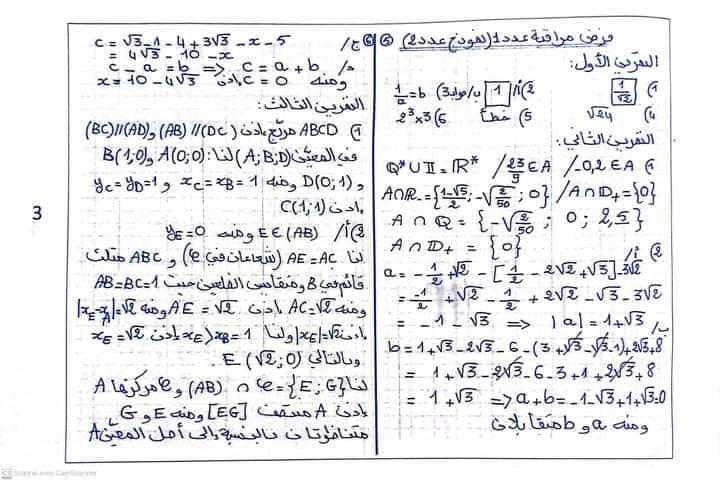 فرض مراقبة عدد 1 (نموذج عدد 2)
التمرين الأول:
1) 1/√2 2) أ/ 1 ب/ صواب 3) 1/a = b
4) √24 5) خطأ 6) 2³×3
التمرين الثاني:
1) -0,2 ∈ A / 23/9 ∈ A / ℚ* ∪ 𝕀 = ℝ*
A∩ℝ₋ = {1-√5/2 ; -√2/50 ; 0} / A∩𝔻₊ = {0}
A ∩ ℚ = {-√2/50 ; 0 ; 2,5}
A ∩ 𝔻₊ = {0}
2) أ/
a = -1/2 + √2 - [1/2 - 2√2 + √3] - 3√2
= -1/2 + √2 - 1/2 + 2√2 - √3 - 3√2
= -1 - √3 => |a| = 1 + √3
ب/
b = 1 + √3 - 2√3 - 6 - (3 + √3 - √3 - 1) + 2√3 + 8
= 1 + √3 - 2√3 - 6 - 3 + 1 + 2√3 + 8
= 1 + √3 => a + b = -1 - √3 + 1 + √3 = 0
ومنه a و b متقابلان
ج/ c = √3 - 1 - 4 + 3√3 - x - 5
= 4√3 - 10 - x
د/ c - a = b <=> c = a + b
ومنه c = 0 إذن x = 10 - 4√3
التمرين الثالث:
1) ABCD مربع إذن (AB) // (DC) و (BC) // (AD)
في المعين (A;B;D) لنا: A(0;0) و B(1;0)
و D(0;1) ومنه xC = xB = 1 و yC = yD = 1
إذن C(1;1)
2) أ/ E ∈ (AB) ومنه yE = 0
لنا AE = AC (شعاعان في 𝒞) و ABC مثلث
قائم في B ومتقايس الضلعين حيث AB = BC = 1
ومنه AC = √2 إذن AE = √2 ومنه |xE - xA| = √2
إذن |xE| = √2 ولنا xE > xB = 1 إذن xE = √2
وبالتالي E(√2;0)
لنا (AB) ∩ 𝒞 = {E ; G} و 𝒞 مركزها A
إذن A منتصف [EG] ومنه E و G
متناظرتان بالنسبة إلى أصل المعين A
3
CS Scanné avec CamScanner